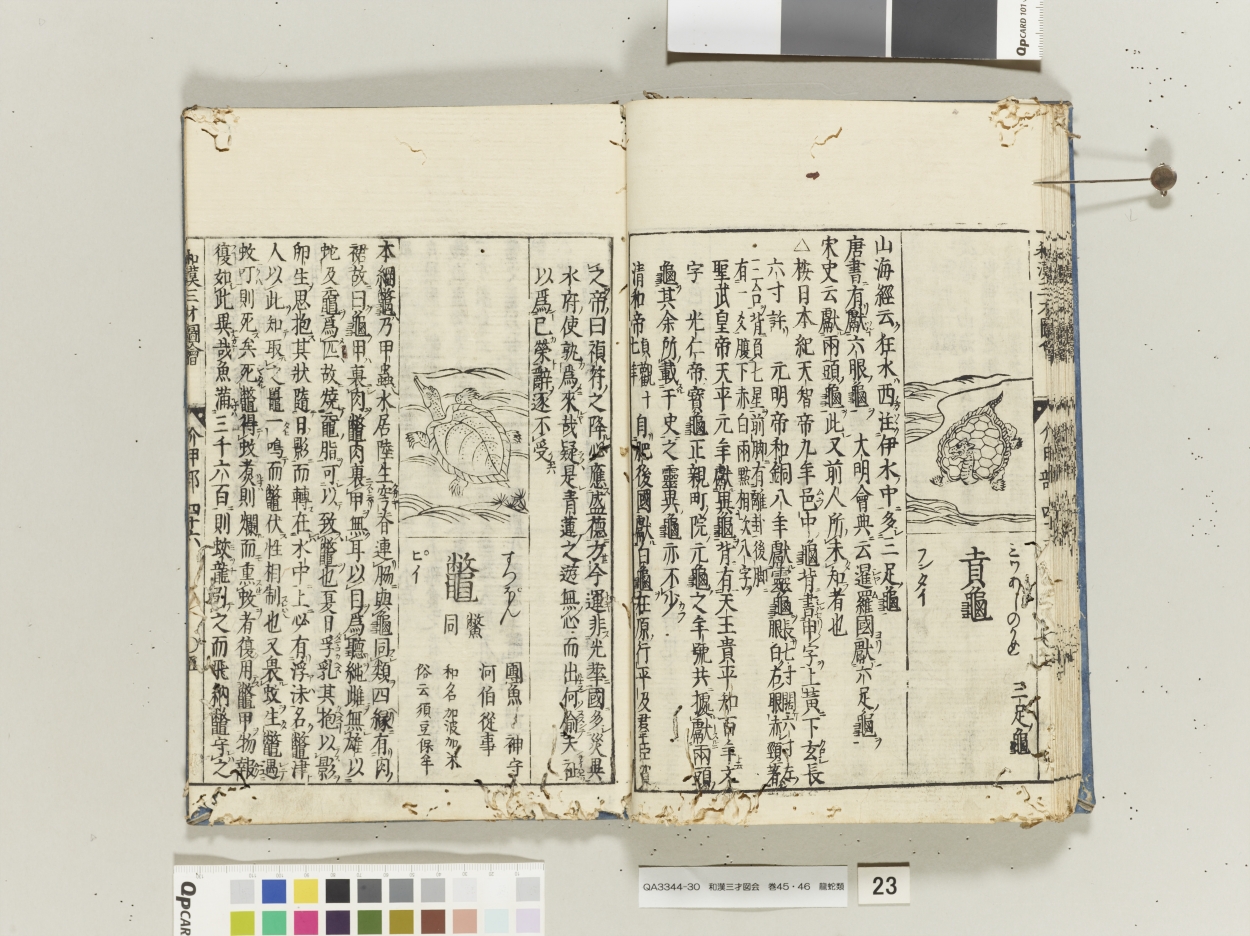 三足龜
賁龜
フンタイ
山海經云狂水西注伊水中多三足龜
唐書有獻六眼龜 大明會典云暹羅國獻六足龜
宋史云獻兩頭龜此又前人所未知者也
△按日本紀天智帝九年邑中龜背書申字上黃下玄長
六寸許 元明帝和銅八年獻靈龜長七寸闊六寸左
眼白右眼赤頸著
三台背負七星前脚有離卦後脚
有一爻腹下赤白兩點相次八字
聖武皇帝天平元年獻異龜背有天王貴平知百年文
字 光仁帝寶龜正親町院元龜之年號共據獻兩頭
龜其余所載于史之靈異龜亦不少
清和帝 自肥後國獻白龜在原行平及君臣賀
之帝曰禎祥之降必應盛德方今運非光華國多災異
水府使孰爲來哉疑是青蓮之遊無心而出何偷天祉
以爲已榮辭遂不受
すつほん
鼈
鱉同
ピイ
團魚 神守
河伯從事
和名加波加米
俗云須豆保牟
本綱鼈乃甲蟲水居陸生穹脊連脇與龜同類四縁有肉
裙故曰龜甲裏肉鼈肉裏甲無耳以目爲聽純雌無雄以
蛇及黿爲匹故燒黿脂可以致鼈也夏日孚乳其抱以影
卵生思抱其狀隨日影而轉在水中上必有浮沫名鼈津
人以此知取之鼉一鳴而鼈伏性相制也又畏蚊生鼈遇
蚊叮則死矣死鼈得蚊煮則爛而熏蚊者復用鼈甲物報
復如此異哉魚滿三千六百則蛟龍引之而飛納鼈守之
和漢三才圖會
介甲部 四十六
QpCARD 101
QA3344-30 和漢三才図会 巻45・46 龍蛇類
23
QpCAR